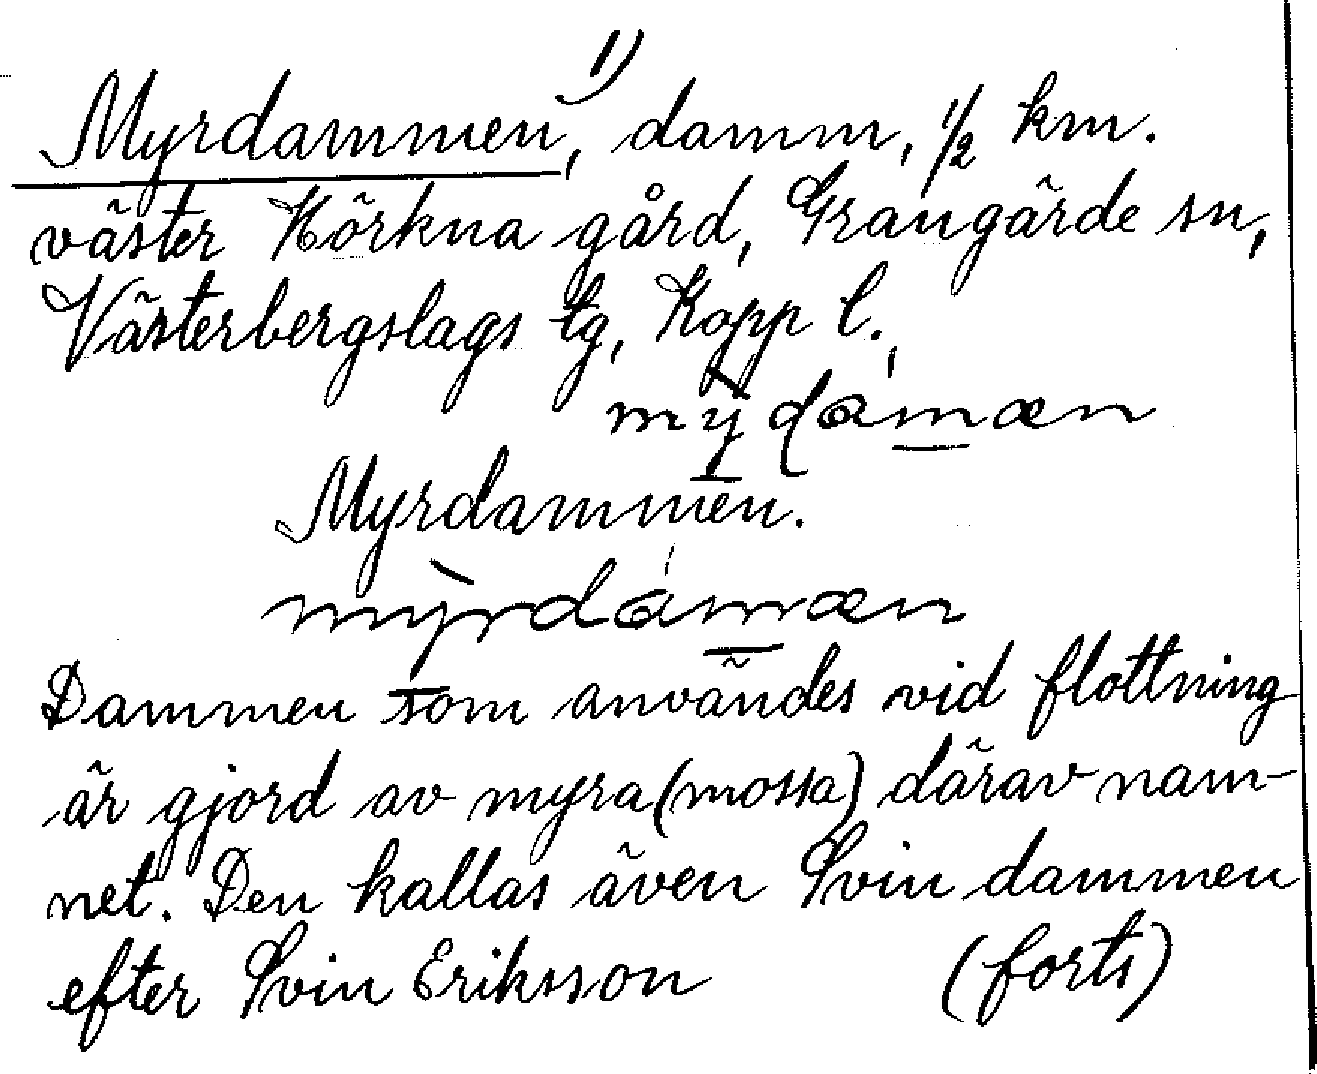 1)
Myrdammen, damm, 1/2 km.
väster Hörkna gård, Grangärde sn,
Västerbergslags tg, Kopp l.,
mỳdamæn
Myrdammen.
mỳrdamæn
Dammen som användes vid flottning
är gjord av myra (mossa) därav nam-
net. Den kallas även Svin dammen
efter Svin Eriksson (forts)